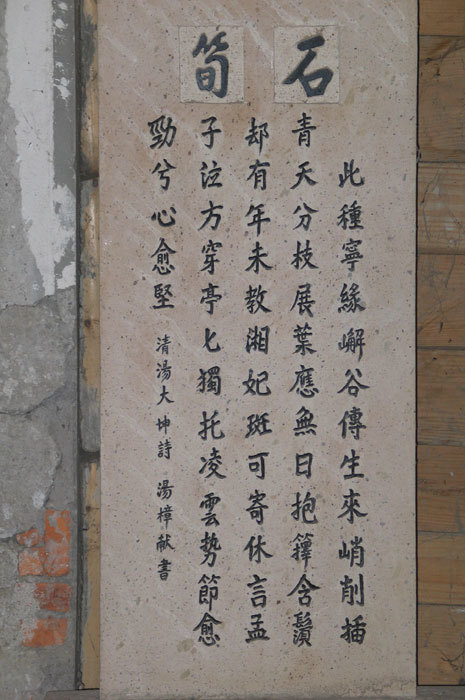 石筍
此種寧緣嶰谷傳生來峭削插
青天分枝展葉應無日抱籜含鬚
却有年未教湘妃斑可寄休言孟
子泣方穿亭匕獨托凌雲勢節愈
勁兮心愈堅
清湯大坤詩 湯樟献書